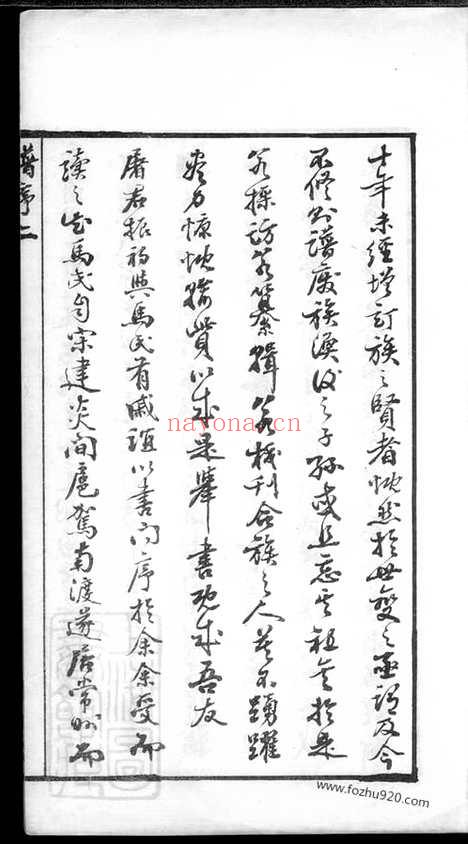 十年未經增訂族之賢者怳然於世變之亟謂及今
不修則譜廢族渙後之子孫或且忘其祖矣於是
若採訪若纂輯若校刊合族之人莫不踴躍
盡力慷慨輸貲以成是舉書既成吾友
屠君振初與馬氏有戚誼以書問序於余余受而
讀之知馬氏自宋建炎間扈駕南渡遂居常州而
譜序二
nayona.cn
www.fozhu920.com